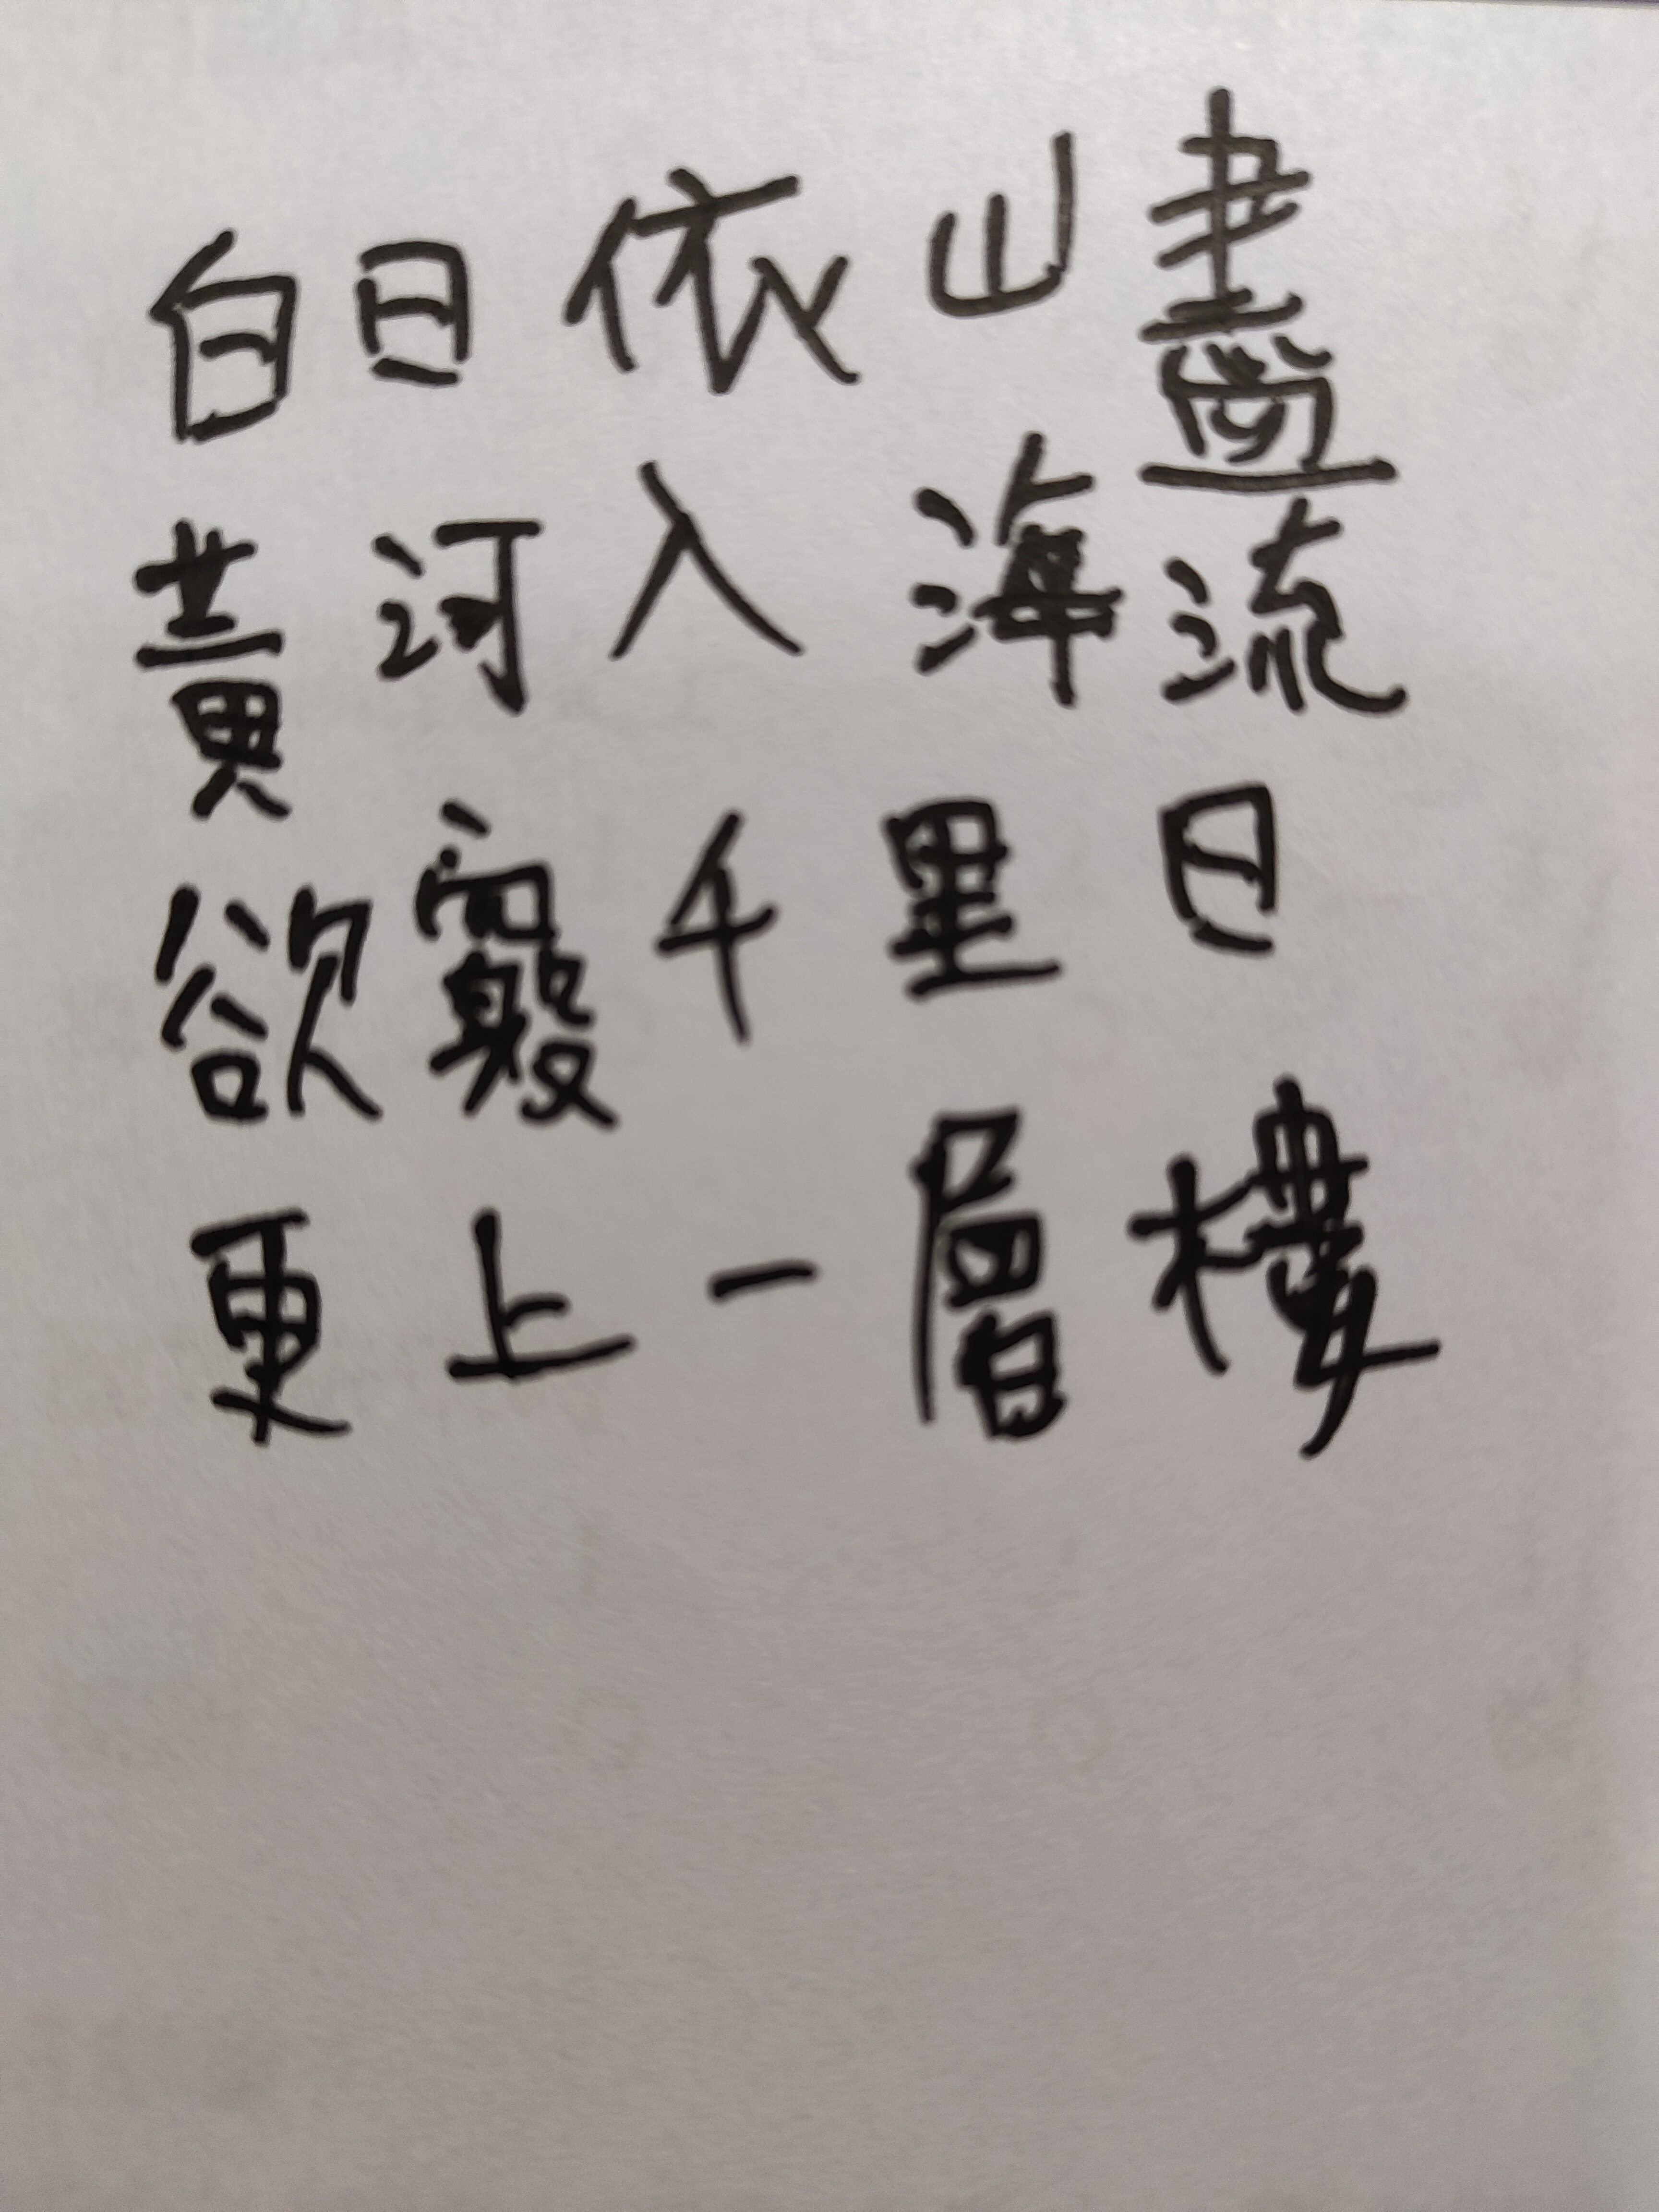 白日依山盡
黃河入海流
欲窮千里日
更上一層樓